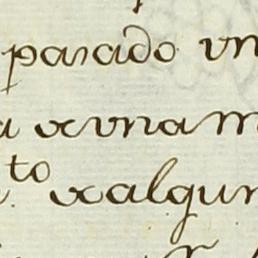 pasado vn
a xvnam
to xalgun